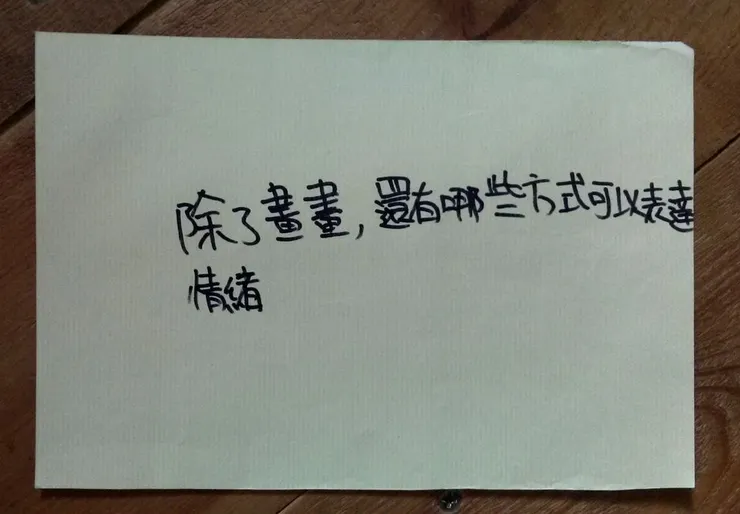 除了畫畫,還有哪些方式可以表達
情緒